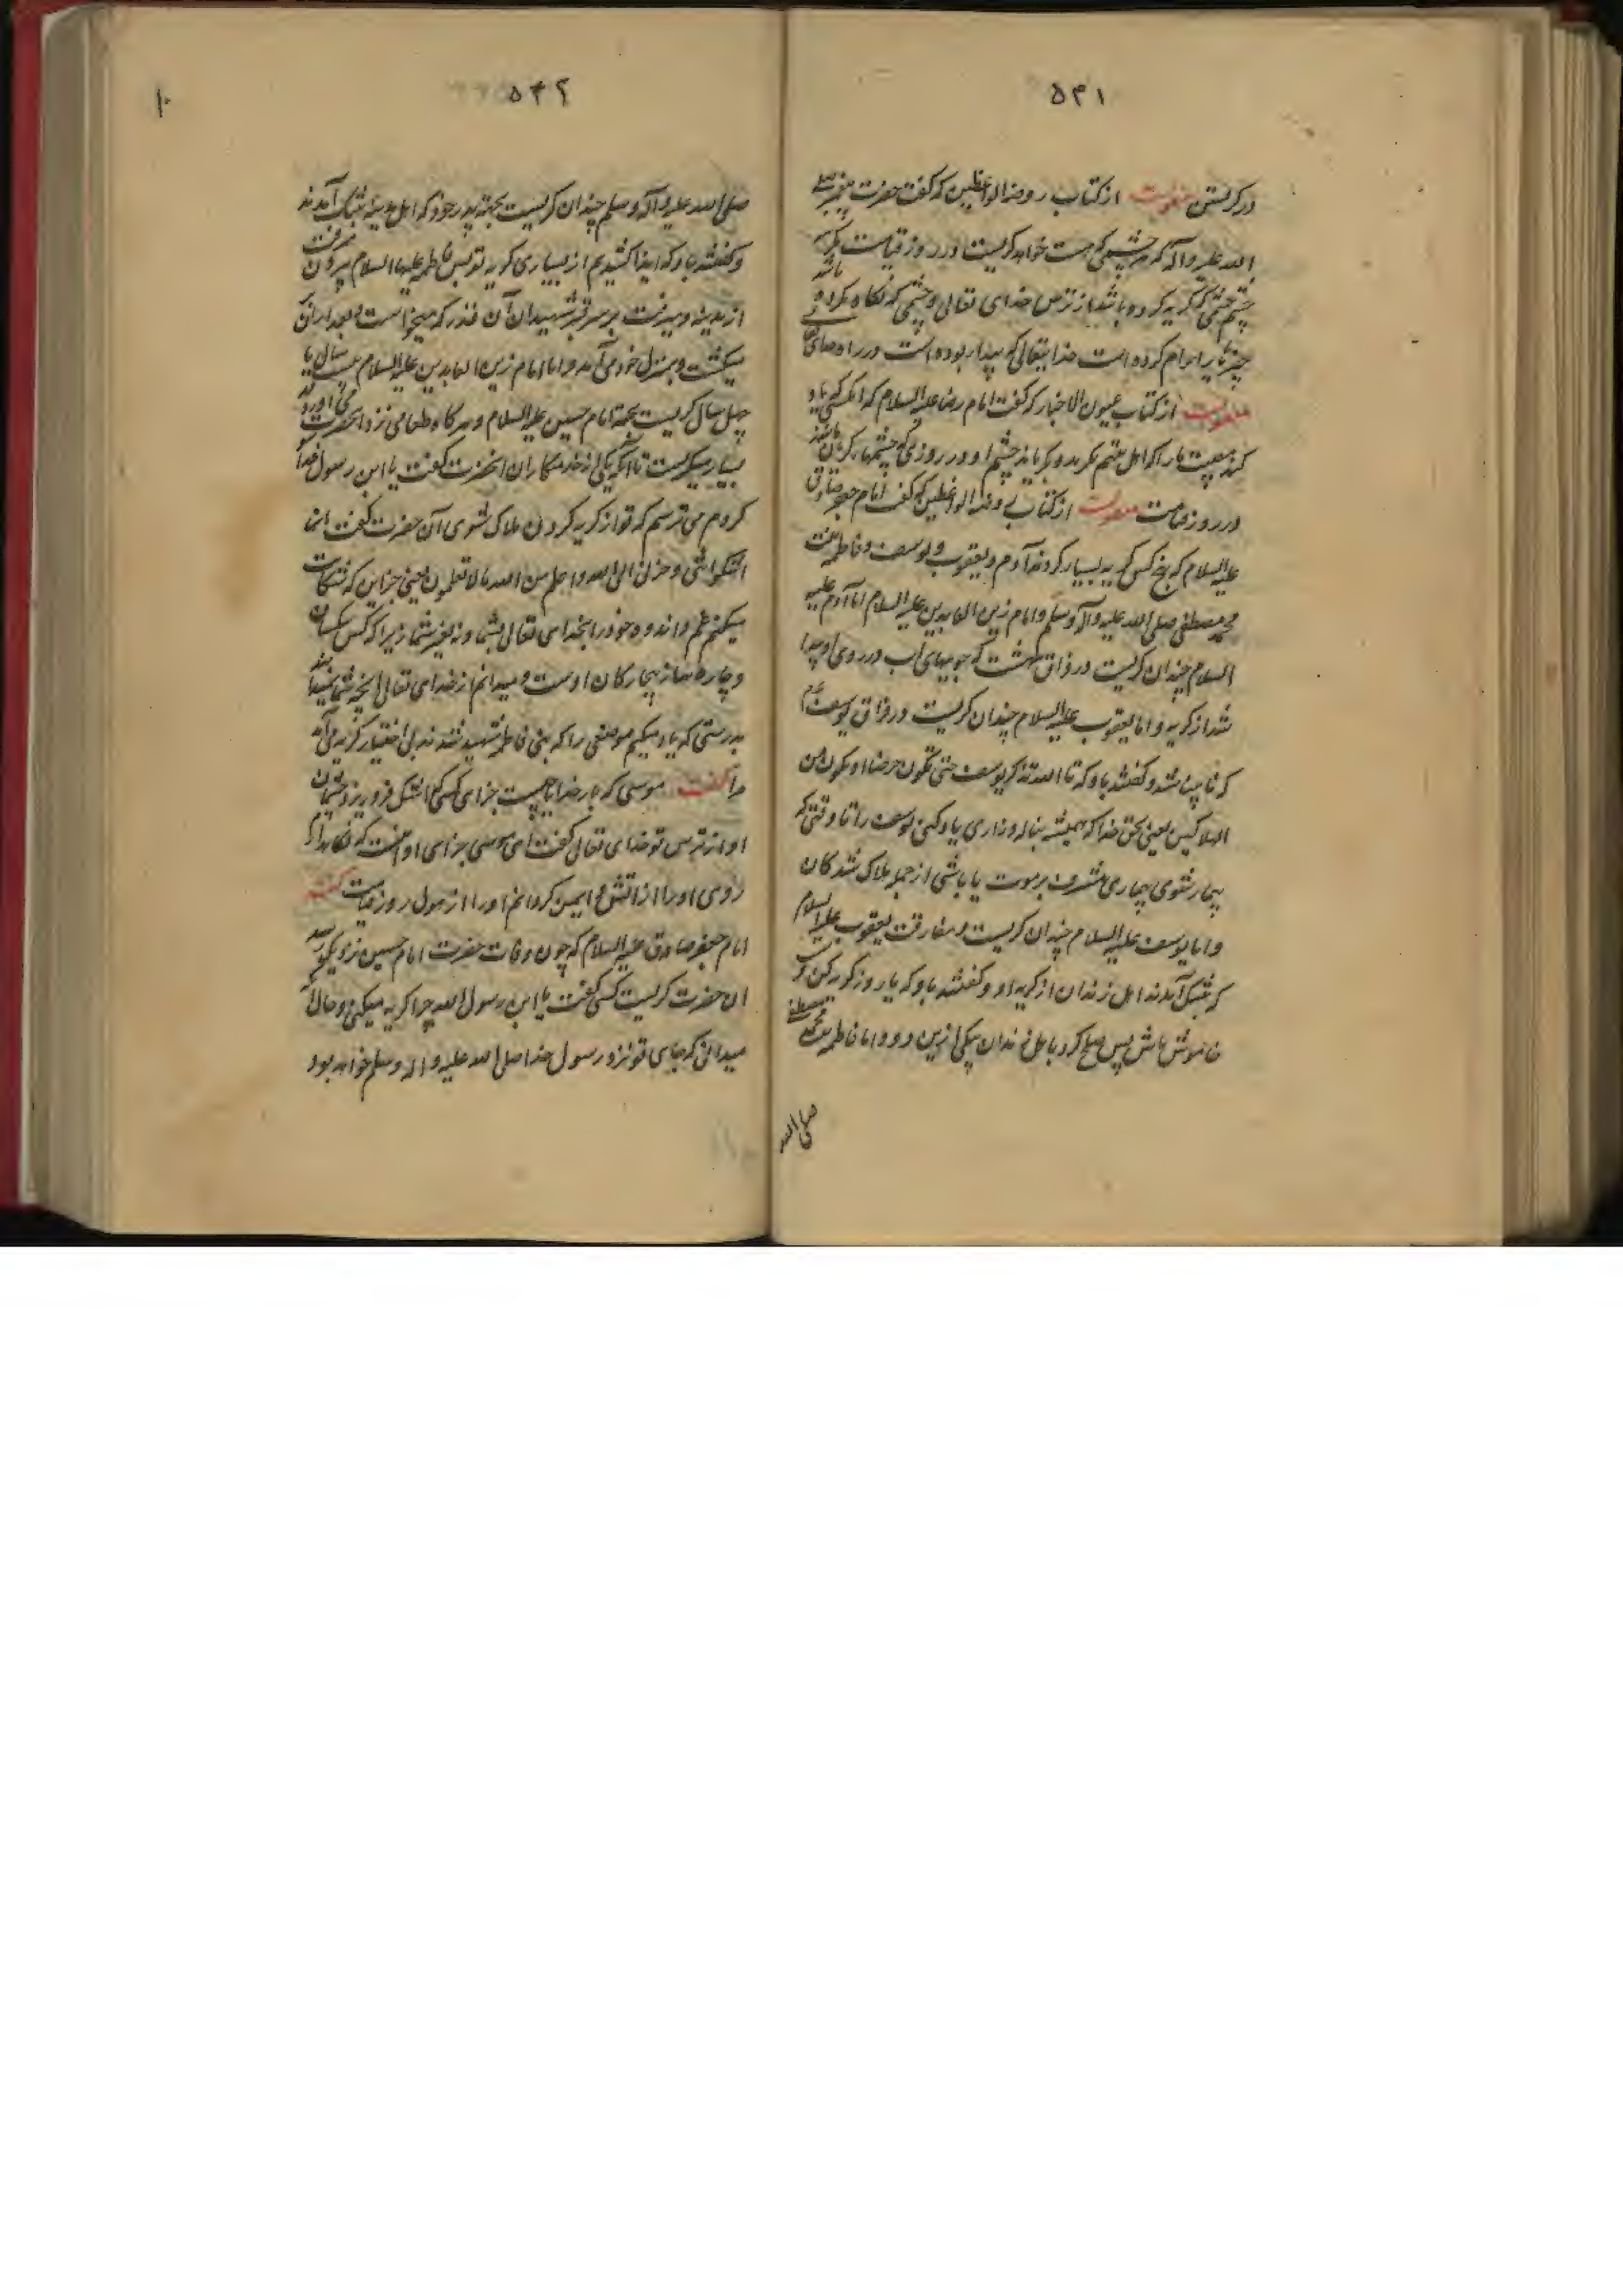 ۵۴۱
در کریستن منقولست از کتاب روضة الواعظین که گفت حضرت پیغمبر صلی
الله علیه و آله که هر چشمی که هست خواهد کریست در روز قیامت مگر سه
چشم چشمی که گریه کرده باشد از ترس خدای تعالی و چشمی که نگاه نکرده باشد
چیزی را حرام کرده است خدایتعالی که بیدار بوده است در راه خدای تعالی
منقولست از کتاب عیون الاخبار که گفت امام رضا علیه السلام که آنکسی که یاد
کند مصیبت ما را که اهل بیتیم بگرید و بگریاند چشم او در روزی که چشمها گریان باشند
در روز قیامت منقولست از کتاب روضة الواعظین که گفت امام جعفر صادق
علیه السلام که پنج کس گریه بسیار کردند آدم و یعقوب و یوسف و فاطمه بنت
محمد مصطفی صلی الله علیه و آله و سلم و امام زین العابدین علیه السلام اما آدم علیه
السلام چندان کریست در فراق بهشت که جویهای آب در روی او پیدا
شد از گریه و اما یعقوب علیه السلام چندان کریست در فراق یوسف
که نابینا شد و گفتند باو که تا الله تذکر یوسف حتی تکون حرضا او تکون من
الهالکین یعنی بحق خدا که همیشه بناله و زاری یاد کنی یوسف را تا وقتی که
بیمار شوی بیماری مشرف بر موت یا باشی از جمله هلاک شدگان
و اما یوسف علیه السلام چندان کریست در مفارقت یعقوب علیه السلام
که بتنگ آمدند اهل زندان از گریه او و گفتند باو که یا روز گریه کن و شب
خاموش باش پس صلح کرد با اهل زندان بیکی ازین دو و اما فاطمه بنت محمد مصطفی
صلی الله
۵۴۲
۱۰
صلی الله علیه و آله و سلم چندان کریست بجهة پدر خود که اهل مدینه بتنگ آمدند
و گفتند باو که ایذا کشیدیم از بسیاری گریه تو پس فاطمه علیها السلام بیرون میرفت
از مدینه و میرفت بر سر قبر شهیدان آن قدر که میخواست و بعد از آن
میگشت و بمنزل خود می آمد و اما امام زین العابدین علیه السلام بیست سال یا
چهل سال کریست بجهة امام حسین علیه السلام و هرگاه طعامی نزد آنحضرت می آوردند
بسیار میکریست تا آنکه یکی از خدمتکاران آنحضرت گفت یا ابن رسول فدا
کردم می ترسم که تو از گریه کردن هلاک شوی آن حضرت گفت انما
اشکو بثی و حزنی الی الله و اعلم من الله ما لا تعلمون یعنی جز این که شکایت
میکنم غم و اندوه خود را بخدای تعالی نه بشما و نه بغیر شما زیرا که کس بیکسان
و چاره ساز بیچارگان اوست و میدانم از خدای تعالی آنچه شما نمیدانید
بدرستی که یاد میکنم موضعی را که بنی فاطمه شهید شدند بی اختیار گریه می آید
مرا گفت موسی که بار خدایا چیست جزای کسی که اشک فرو ریزد چشمان
او از ترس تو خدای تعالی گفت ای موسی جزای او آنست که نگاهدارم
روی او را از آتش و ایمن گردانم او را از هول روز قیامت گفت
امام جعفر صادق علیه السلام که چون وفات حضرت امام حسین نزدیک رسید
آن حضرت کریست کسی گفت یا ابن رسول الله چرا گریه میکنی و حال آنکه
میدانی که جای تو نزد رسول خدا صلی الله علیه و اله و سلم خواهد بود